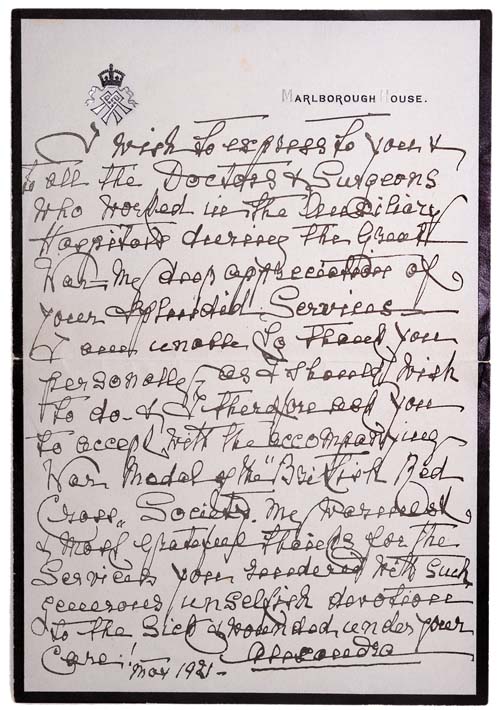 MARLBOROUGH HOUSE.
I wish to express to you &
to all the Doctors & Surgeons
who worked in the Auxiliary
Hospitals during the Great
War my deep appreciation of
your splendid Services
I am unable to thank you
personally, as I should wish
to do & I therefore ask you
to accept with the accompanying
War Medal of the "British Red
Cross" Society. My warmest
& most grateful thanks for the
Services you rendered with such
generous unselfish devotion
to the Sick & wounded under your
Care!
May 1921 - Alexandra